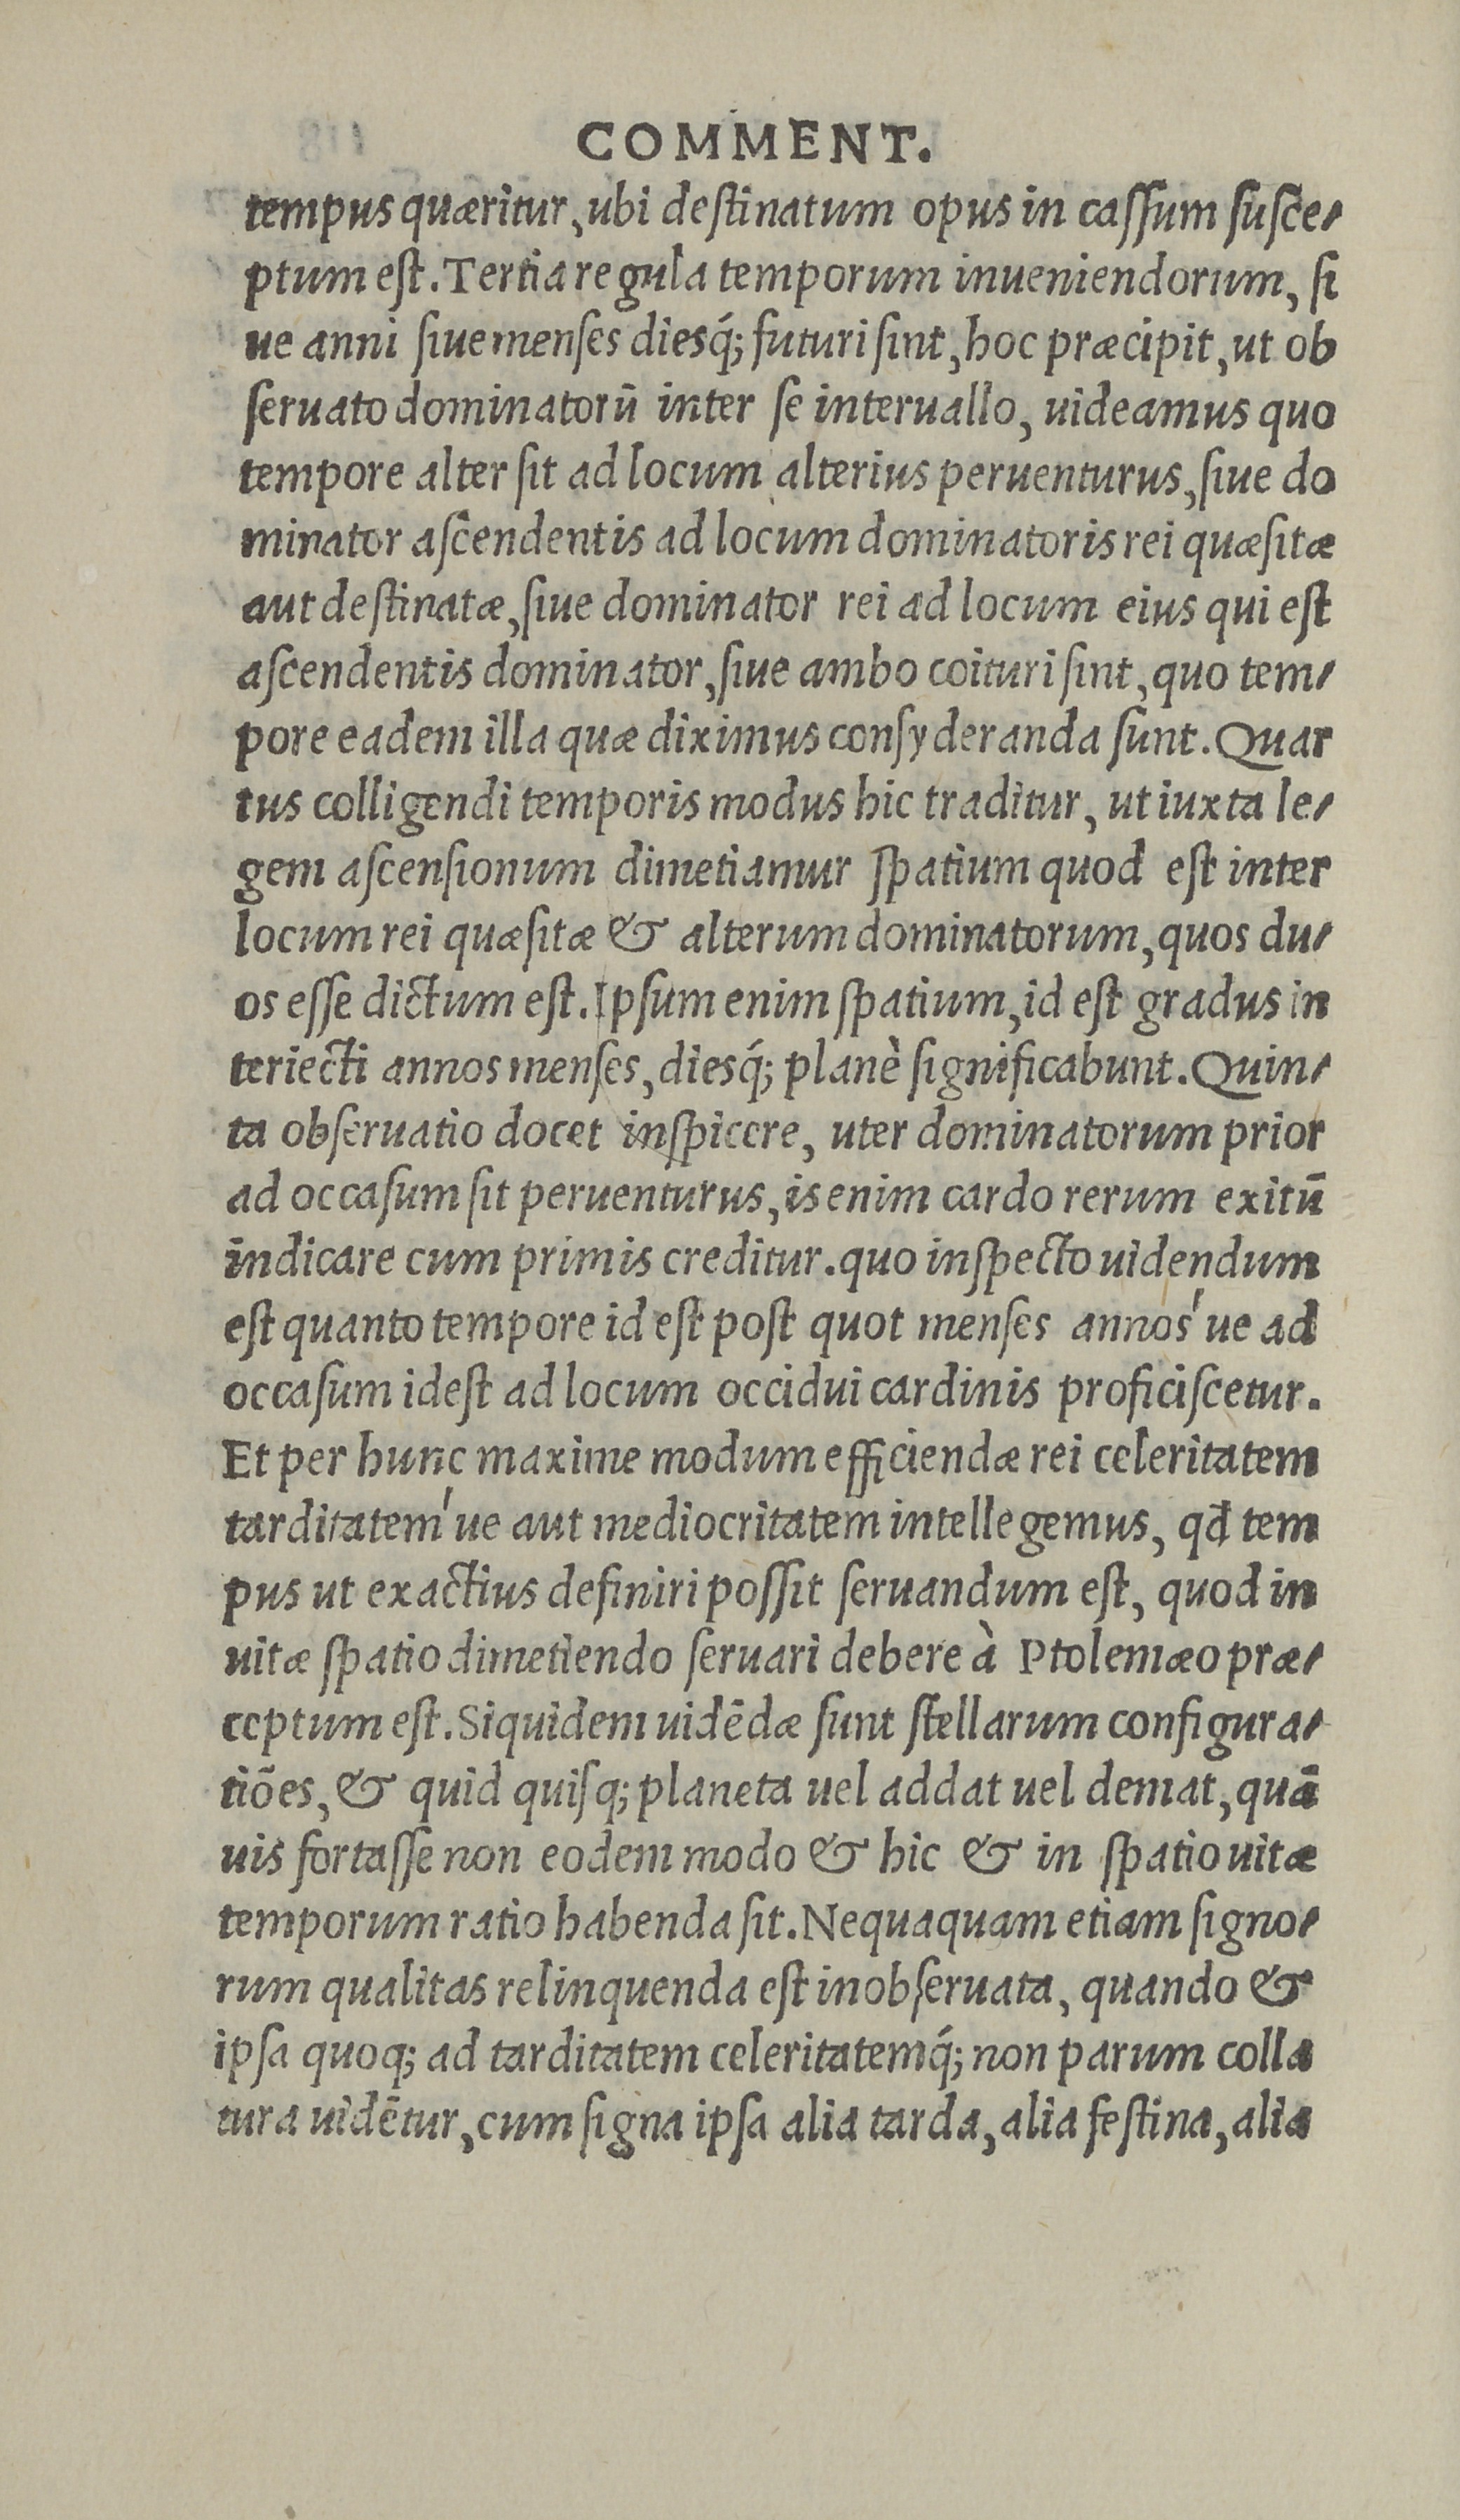 COMMENT.
tempus quæritur, ubi deſtinatum opus in caſſum ſuſce-
ptum eſt. Tertia regula temporum inueniendorum, ſi
ue anni ſiue menſes diesq́; futuri ſint, hoc præcipit, ut ob
ſeruato dominatorū inter ſe interuallo, uideamus quo
tempore alter ſit ad locum alterius peruenturus, ſiue do
minator aſcendentis ad locum dominatoris rei quæſitæ
aut deſtinatæ, ſiue dominator rei ad locum eius qui eſt
aſcendentis dominator, ſiue ambo coituri ſint, quo tem-
pore eadem illa quæ diximus conſyderanda ſunt. Quar
tus colligendi temporis modus hic traditur, ut iuxta le-
gem aſcenſionum dimetiamur ſpatium quod eſt inter
locum rei quæſitæ & alterum dominatorum, quos du-
os eſſe dictum eſt. Ipſum enim ſpatium, id eſt gradus in
teriecti annos menſes, diesq́; planè ſignificabunt. Quin-
ta obſeruatio docet inſpicere, uter dominatorum prior
ad occaſum ſit peruenturus, is enim cardo rerum exitū
indicare cum primis creditur. quo inſpecto uidendum
eſt quanto tempore id eſt poſt quot menſes annos'ue ad
occaſum ideſt ad locum occidui cardinis proficiſcetur.
Et per hunc maxime modum efficiendæ rei celeritatem
tarditatem'ue aut mediocritatem intellegemus, qđ tem
pus ut exactius definiri poſſit ſeruandum eſt, quod in
uitæ ſpatio dimetiendo ſeruari debere à Ptolemæo præ-
ceptum eſt. Siquidem uidēdæ ſunt ſtellarum configura-
tiōes, & quid quiſq; planeta uel addat uel demat, quā
uis fortaſſe non eodem modo & hic & in ſpatio uitæ
temporum ratio habenda ſit. Nequaquam etiam ſigno-
rum qualitas relinquenda eſt inobſeruata, quando &
ipſa quoq; ad tarditatem celeritatemq́; non parum colla
tura uidētur, cum ſigna ipſa alia tarda, alia feſtina, alia